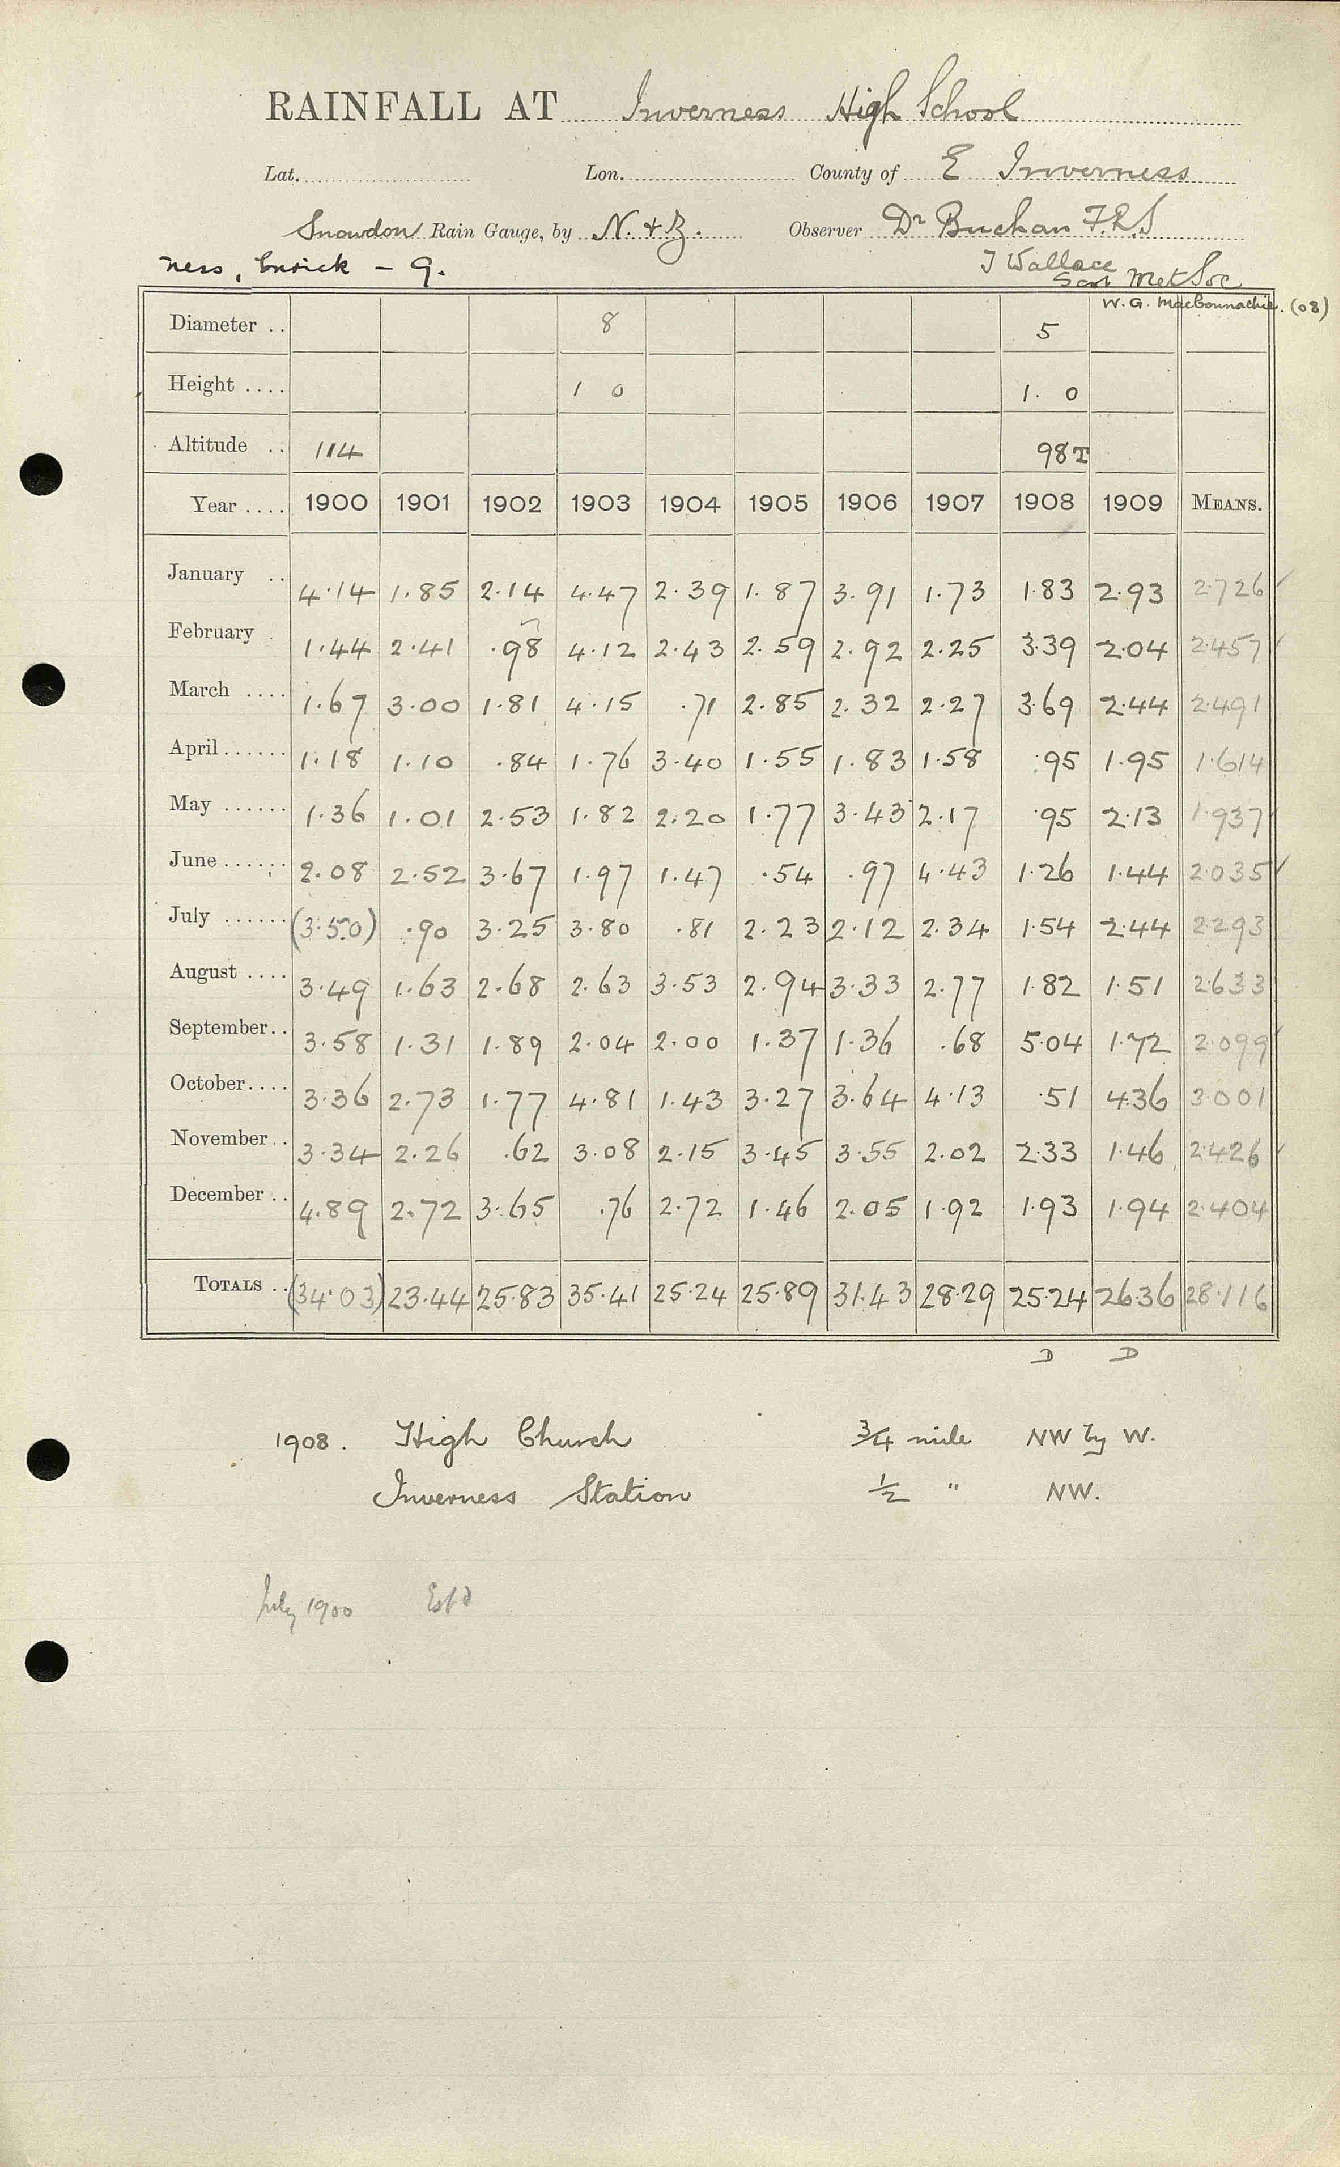 RAINFALL AT Inverness High School
Lat. Lon. County of E Inverness
Snowdon Rain Gauge, by N. & Z. Observer Dr Buchan F.R.S
Ness, Enrick - 9. J Wallace
Scot Met Soc
W. G. MacConnachie. (08)
Diameter .. 8 5
Height .... 1 0 1. 0
Altitude .. 114 98T
Year .... 1900 1901 1902 1903 1904 1905 1906 1907 1908 1909 MEANS.
January .. 4.14 1.85 2.14 4.47 2.39 1.87 3.91 1.73 1.83 2.93 2.726
February . 1.44 2.41 .98 4.12 2.43 2.59 2.92 2.25 3.39 2.04 2.457
March .... 1.67 3.00 1.81 4.15 .71 2.85 2.32 2.27 3.69 2.44 2.491
April ...... 1.18 1.10 .84 1.76 3.40 1.55 1.83 1.58 .95 1.95 1.614
May ...... 1.36 1.01 2.53 1.82 2.20 1.77 3.43 2.17 .95 2.13 1.937
June ...... 2.08 2.52 3.67 1.97 1.47 .54 .97 4.43 1.26 1.44 2.035
July ...... (3.50) .90 3.25 3.80 .81 2.23 2.12 2.34 1.54 2.44 2.293
August .... 3.49 1.63 2.68 2.63 3.53 2.94 3.33 2.77 1.82 1.51 2.633
September.. 3.58 1.31 1.89 2.04 2.00 1.37 1.36 .68 5.04 1.72 2.099
October.... 3.36 2.73 1.77 4.81 1.43 3.27 3.64 4.13 .51 4.36 3.001
November .. 3.34 2.26 .62 3.08 2.15 3.45 3.55 2.02 2.33 1.46 2.426
December .. 4.89 2.72 3.65 .76 2.72 1.46 2.05 1.92 1.93 1.94 2.404
TOTALS .. (34.03) 23.44 25.83 35.41 25.24 25.89 31.43 28.29 25.24 26.36 28.116
D D
1908. High Church 3/4 mile NW by W.
Inverness Station 1/2 " NW.
July 1900 Est'd